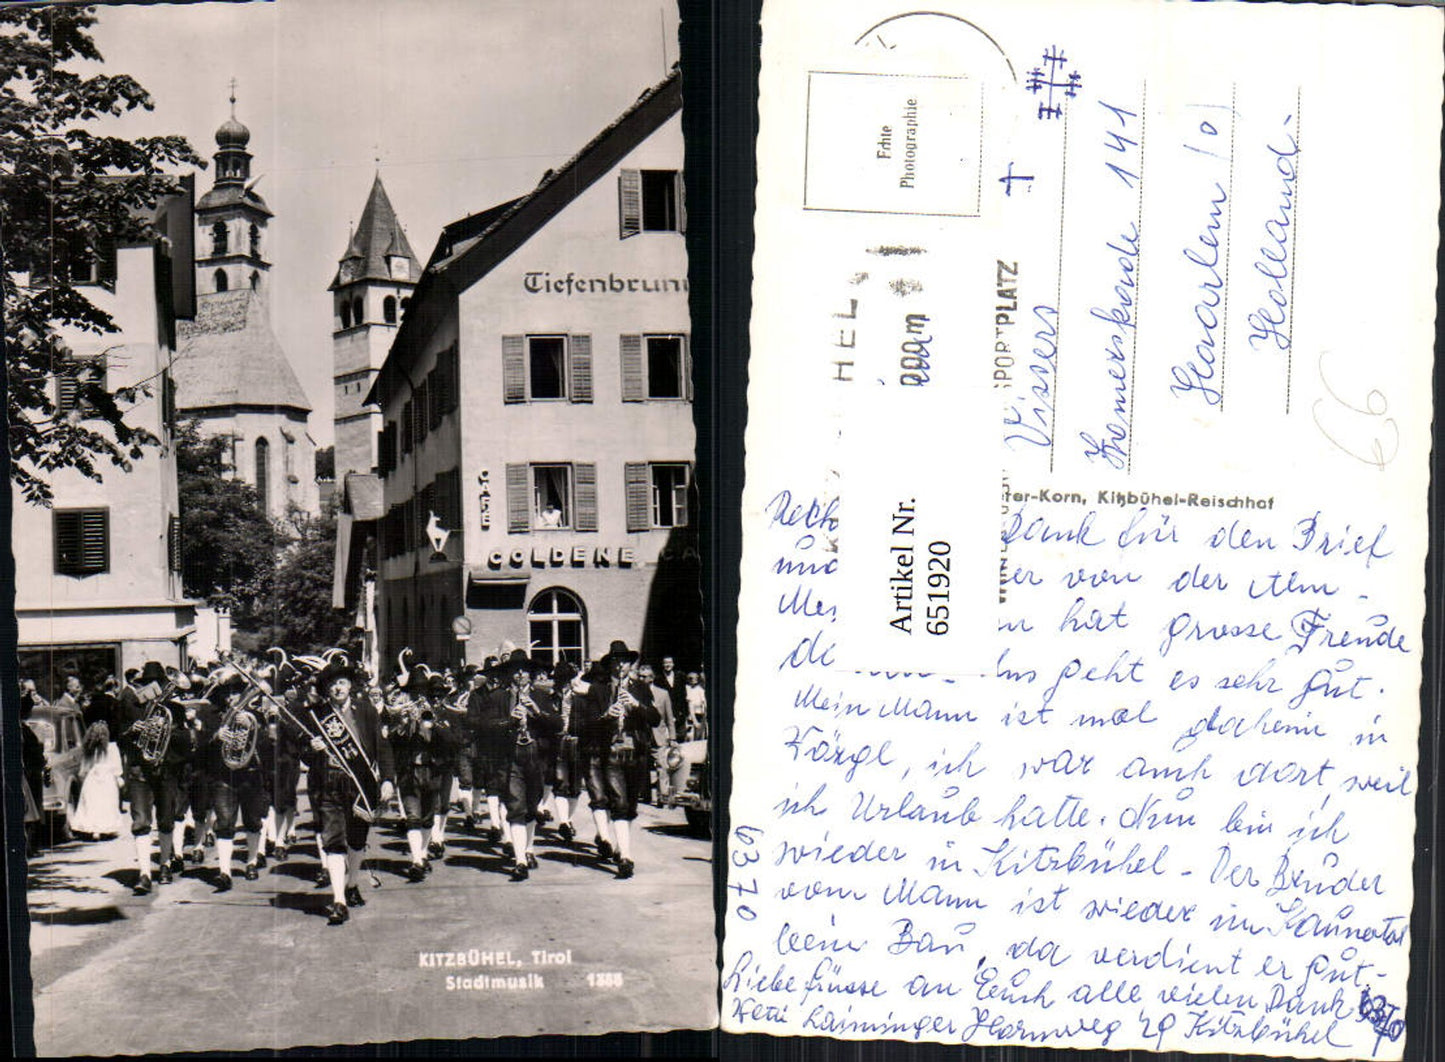 Tiefenbrunn
CAFE
GOLDENE
CA
KITZBÜHEL, Tirol
Stadtmusik 1388
Echte
Photographie
HEL
000m
SPORTPLATZ
Artikel Nr.
651920
er-Korn, Kitzbühel-Reischhof
Vissers
141
Haarlem (o)
Holland.
66
Dank für den Brief
und er von der Alm-
hat grosse Freude
geht es sehr gut.
Mein Mann ist mal daheim in
, ich war auch dort, weil
ich Urlaub hatte. Nun bin ich
wieder in Kitzbühel. Der Bruder
vom Mann ist wieder im Kaunertal
beim Bau, da verdient er gut.
Liebe Grüsse an Euch alle vielen Dank
Laiminger Hornweg 29 Kitzbühel
6370